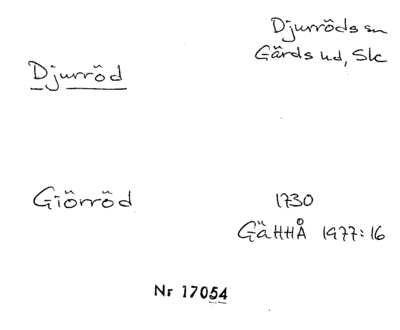 Djurröds sn
Gärds hd, Sk
Djurröd
Giörröd
1730
GäHHÅ 1977:16
Nr 17054